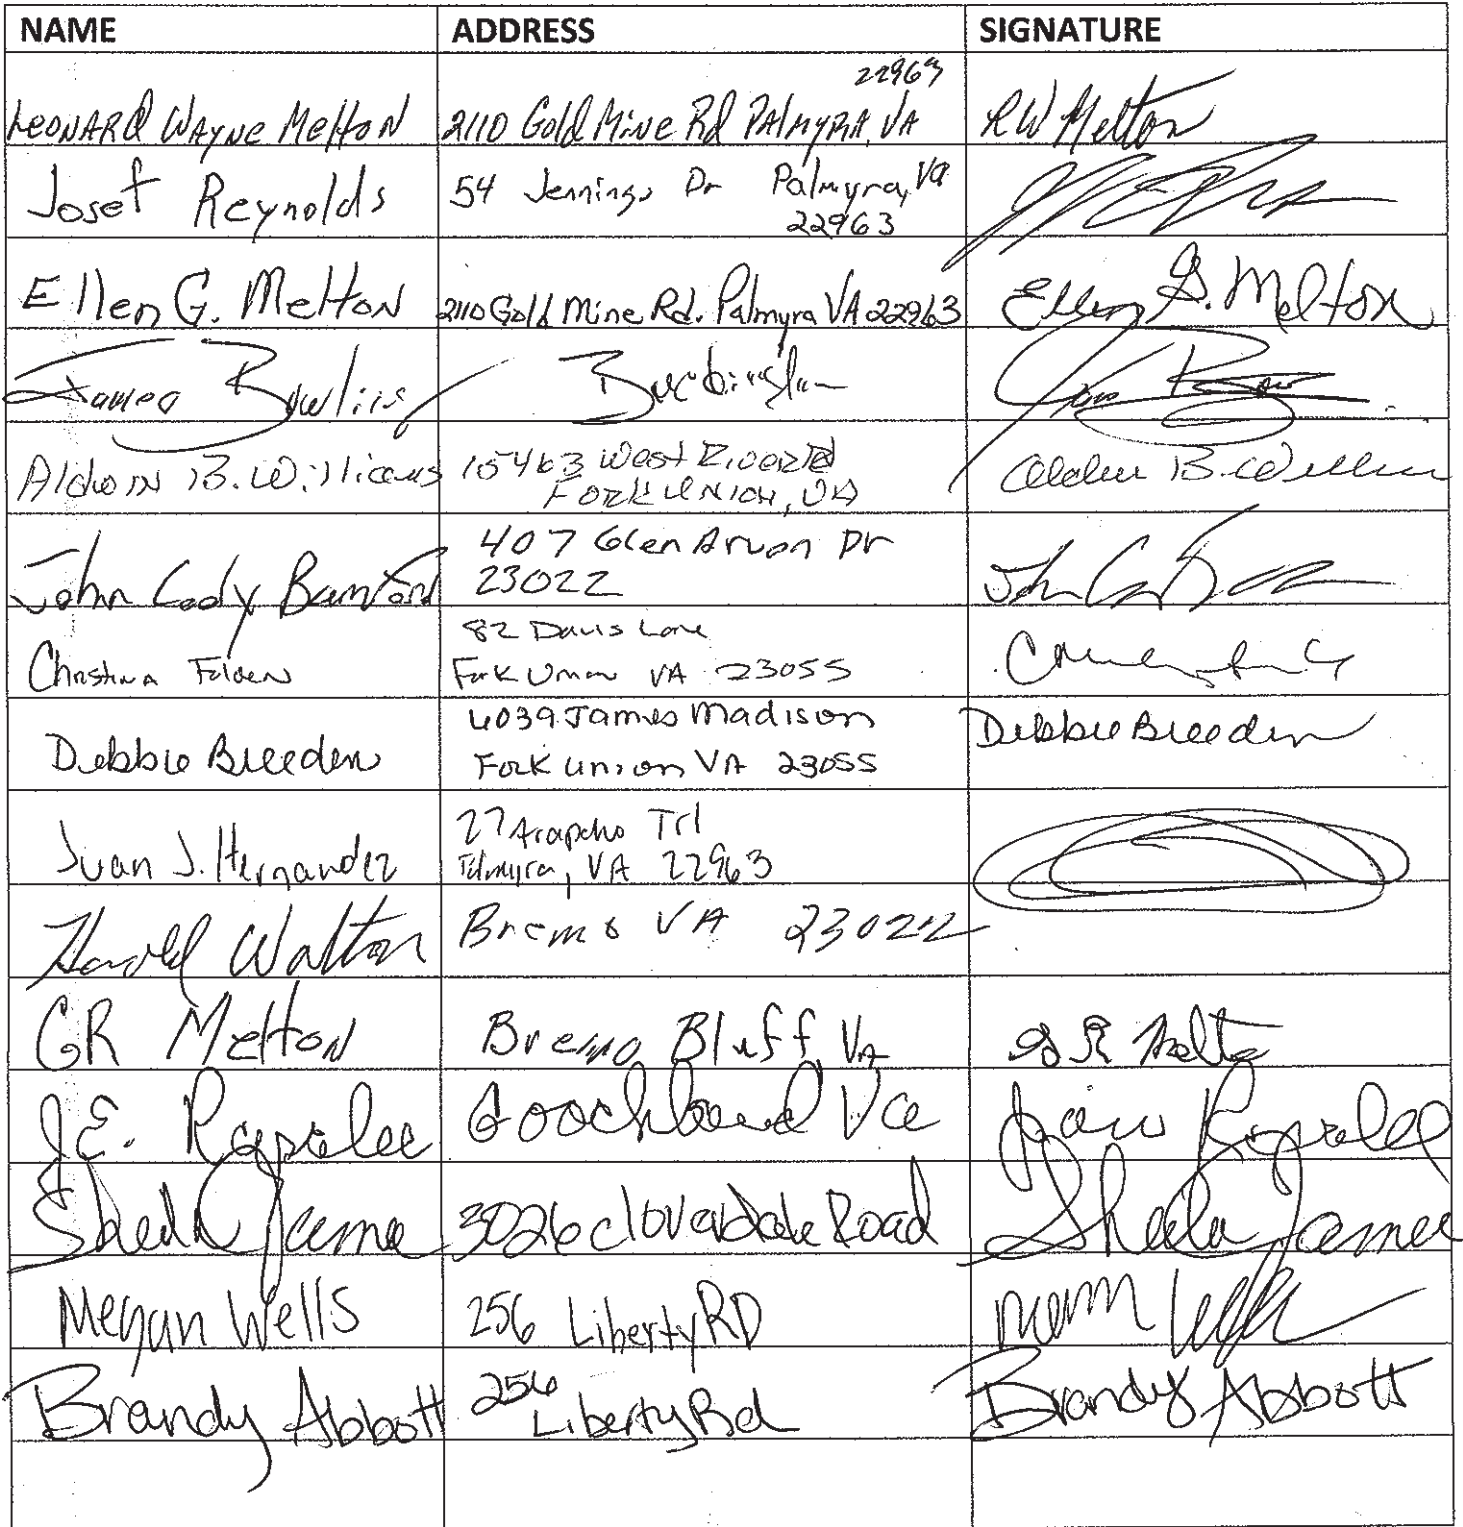 NAME ADDRESS SIGNATURE
22963
LEONARD WAYNE MELTON 2110 Gold Mine Rd PALMYRA, VA RW Melton
Josef Reynolds 54 Jennings Dr Palmyra, Va
22963
Ellen G. Melton 2110 Gold Mine Rd. Palmyra VA 22963 Ellen G. Melton
James
Aldwin B. Williams 15463 West River Rd
FORK UNION, VA
John Cody Bamford 407 Glen Arvon Dr
23022
Christina Folden 82 Davis Lane
Fork Union VA 23055
Debbie Breeden 4039 James Madison Debbie Breeden
Fork Union VA 23055
Juan J. Hernandez 27 Arapeho Trl
Palmyra, VA 22963
Harold Walton Bremo VA 23022
GR Melton Bremo Bluff, VA
J.E. Goochland Va
Sheila James 3026 Cloverdale Road Sheila James
Megan Wells 256 Liberty RD
Brandy Abbott 256 Brandy Abbott
Liberty Rd